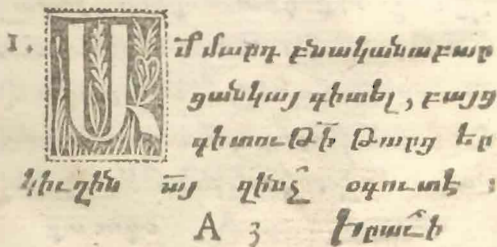 1. Ամ մարդ բնականաբար
ցանկայ գիտել, բայց
գիտութի՛ թարց եր
կիւղին այ զինչ օգուտէ ։
A 3 Երաշի